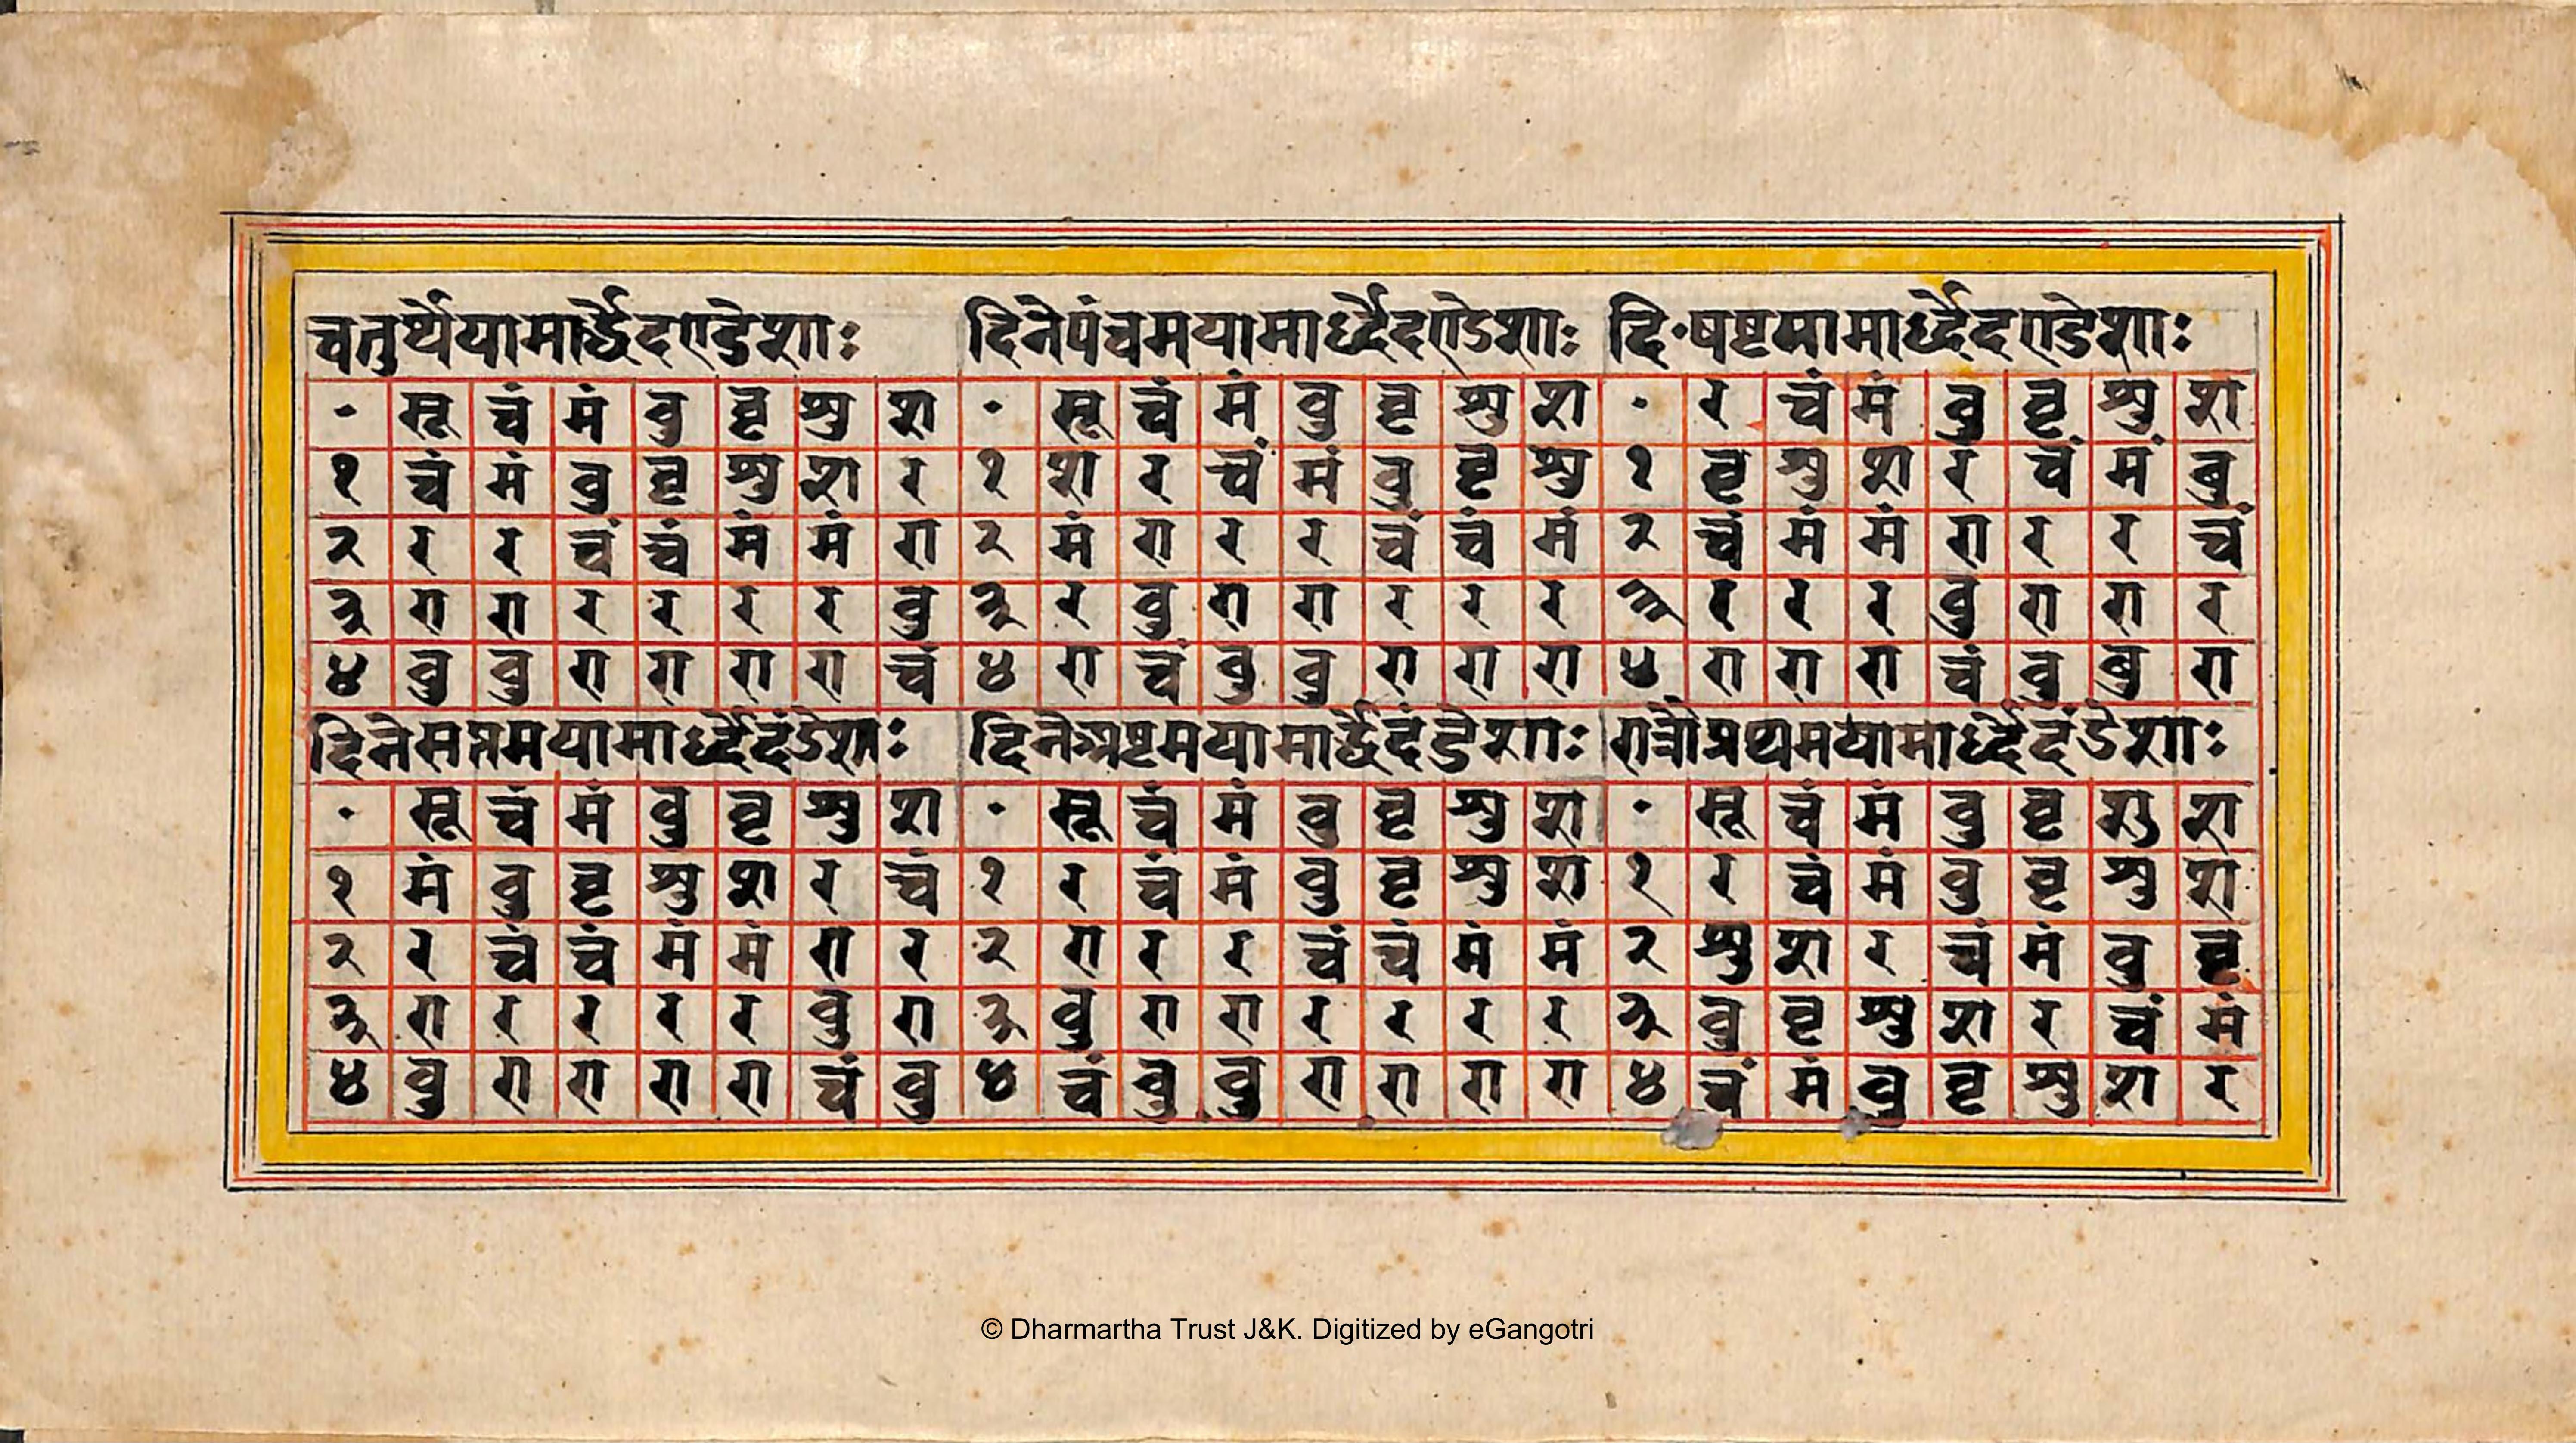 चतुर्थेयामार्द्धेदण्डेशाः दिनेपंचमयामार्द्धेदण्डेशाः दि॰षष्टयामार्द्धेदण्डेशाः
॰ सू चं मं बु बृ शु श ॰ सू चं मं बु बृ शु श ॰ र चं मं बु बृ शु श
१ चं मं बु बृ शु श र १ श र चं मं बु बृ शु १ बृ शु श र चं मं बु
२ र र चं चं मं मं रा २ मं रा र र चं चं मं २ चं मं मं रा र र चं
३ रा रा र र र र बु ३ र बु रा रा र र र ३ र र र बु रा रा र
४ बु बु रा रा रा रा चं ४ रा चं बु बु रा रा रा ४ रा रा रा चं बु बु रा
दिनेसप्तमयामार्द्धेदंडेशाः दिनेअष्टमयामार्द्धेदंडेशाः रात्रौप्रथमयामार्द्धेदंडेशाः
॰ सू चं मं बु बृ शु श ॰ सू चं मं बु बृ शु श ॰ सू चं मं बु बृ शु श
१ मं बु बृ शु श र चं १ र चं मं बु बृ शु श १ र चं मं बु बृ शु श
२ र चं चं मं मं रा र २ रा र र चं चं मं मं २ शु श र चं मं बु बृ
३ रा र र र र बु रा ३ बु रा रा र र र र ३ बु बृ शु श र चं मं
४ बु रा रा रा रा चं बु ४ चं बु बु रा रा रा रा ४ चं मं बु बृ शु श र
© Dharmartha Trust J&K. Digitized by eGangotri